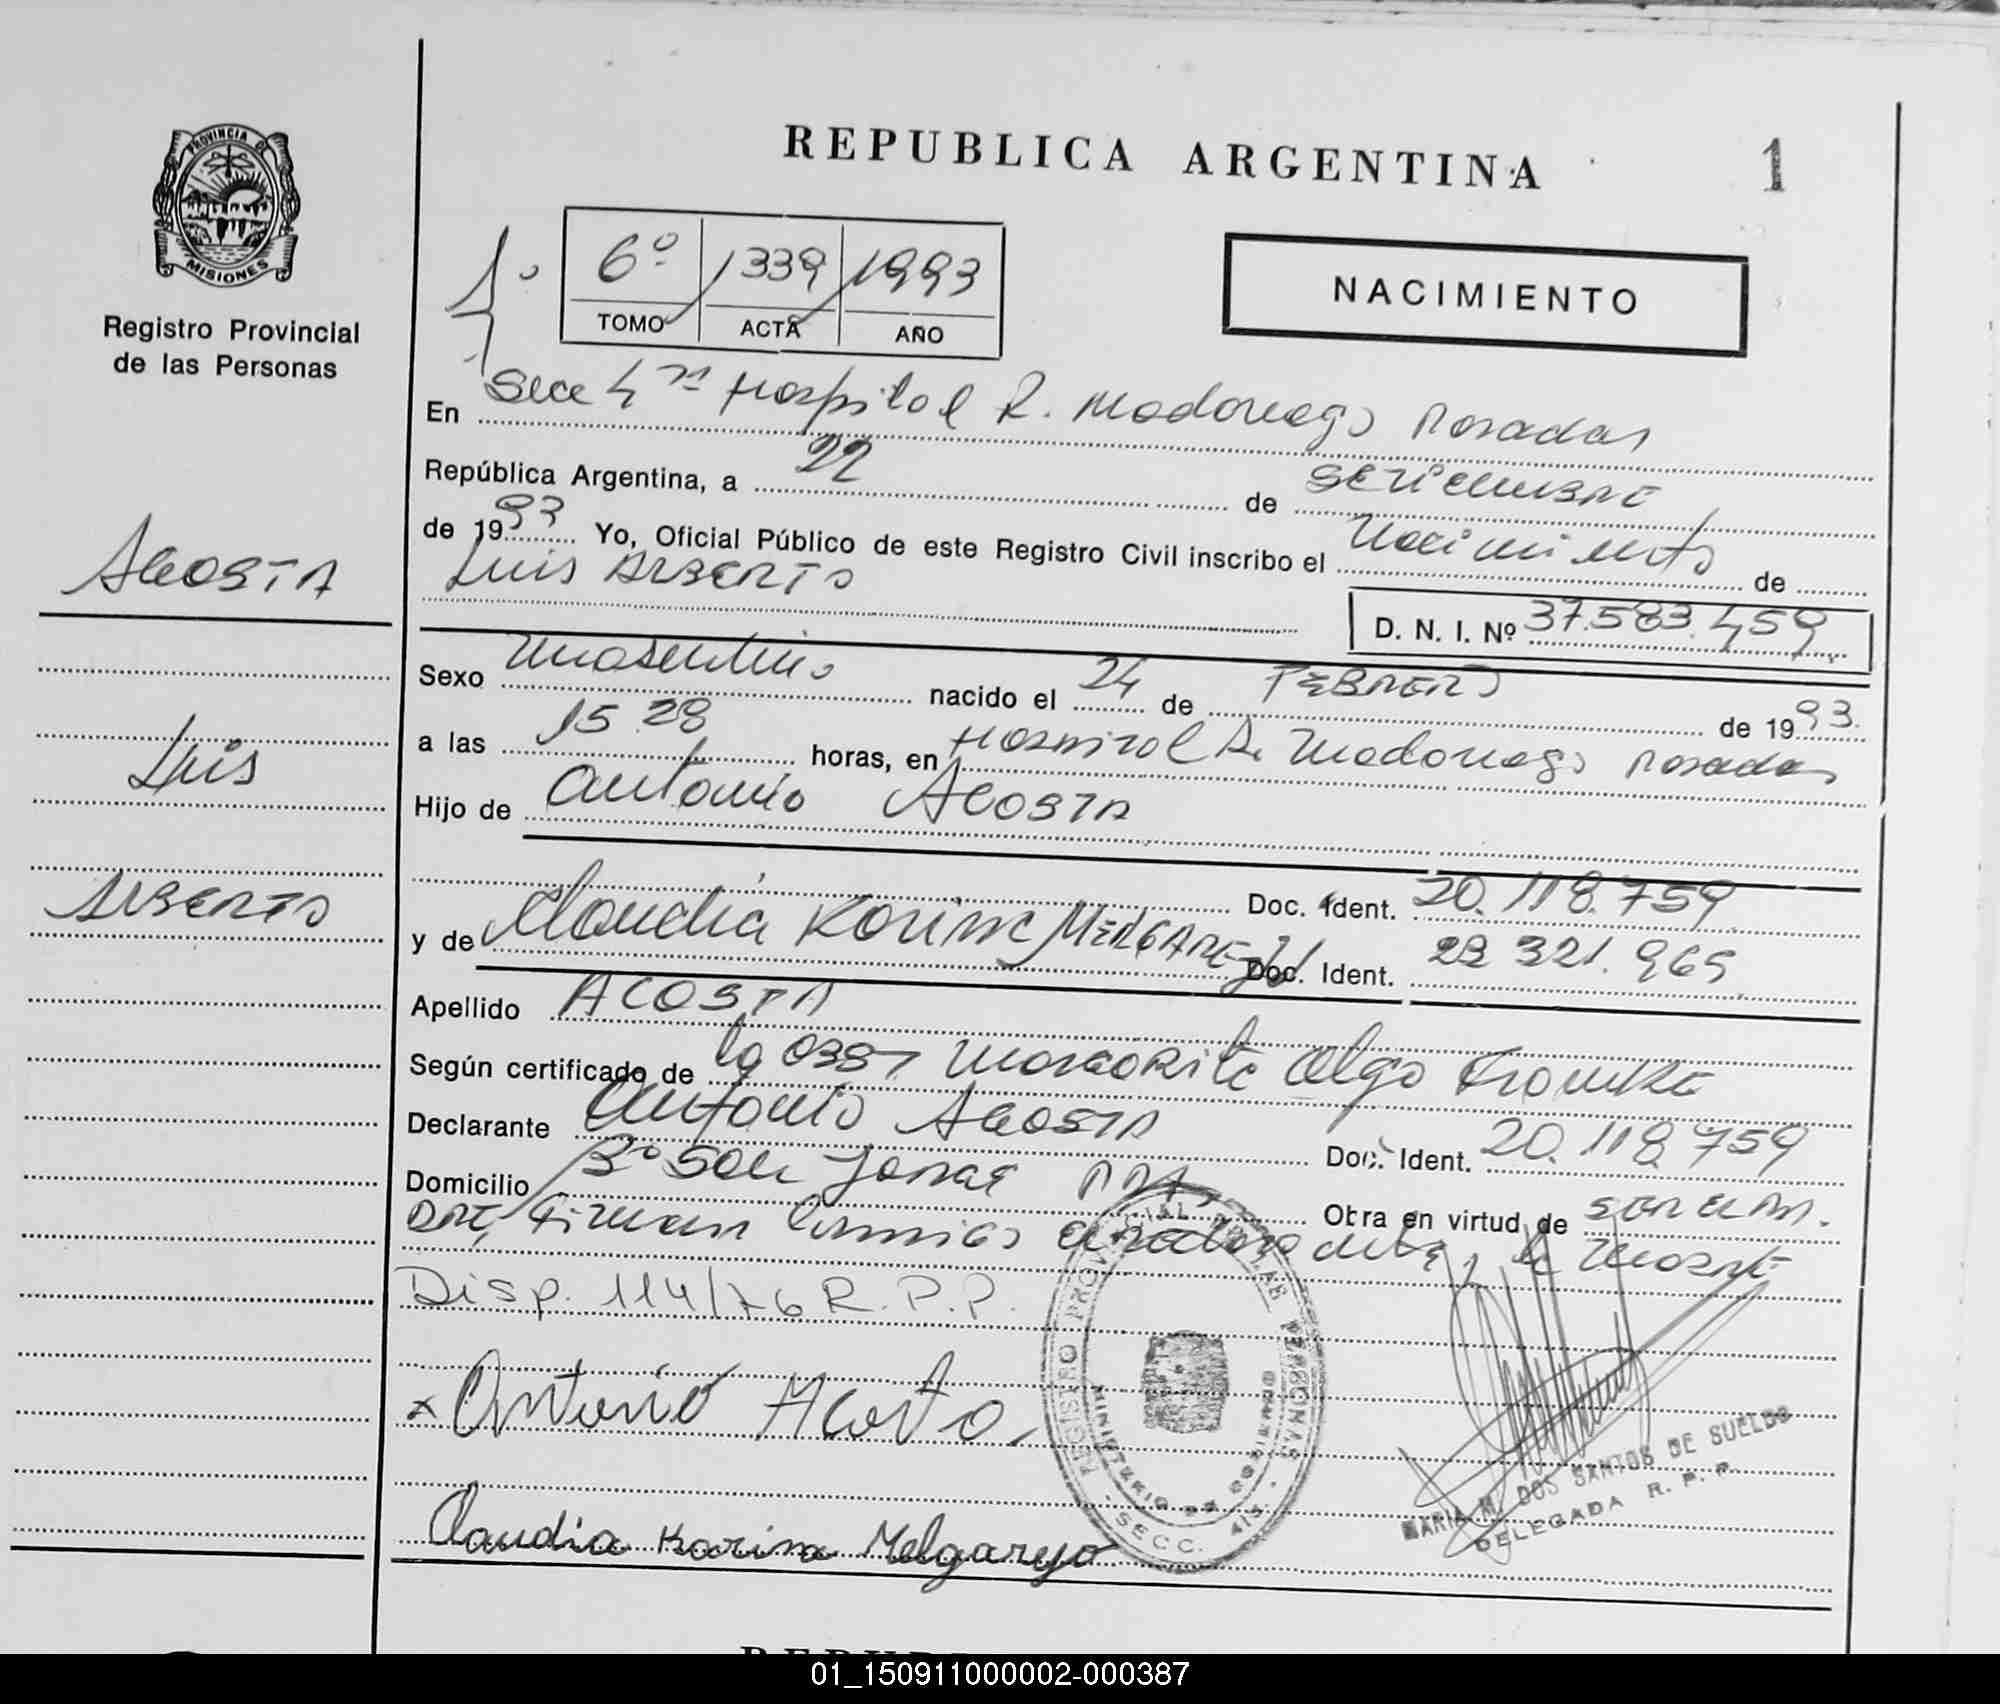 REPUBLICA ARGENTINA
1
PROVINCIA DE
MISIONES
Registro Provincial
de las Personas
6º 1339 1993
TOMO ACTA AÑO
NACIMIENTO
En Secc 4ta Hospital R. Madariaga Posadas
República Argentina, a 22 de SETIEMBRE
de 1993 Yo, Oficial Público de este Registro Civil inscribo el Nacimiento de
LUIS ALBERTO
D. N. I. Nº 37.583.459
ACOSTA
Luis
ALBERTO
Sexo Masculino nacido el 24 de FEBRERO de 1993.
a las 15 28 horas, en Hospital R. Madariaga Posadas
Hijo de Antonio ACOSTA
Doc. Ident. 20.118.759
y de Claudia Karina MELGAREJO Doc. Ident. 23 321.965
Apellido ACOSTA
Según certificado de la Margarita Olga
Declarante Antonio ACOSTA Doc. Ident. 20.118.759
Domicilio Otra en virtud de
Disp. 114/76 R.P.P.
x Antonio Acosta
Claudia Karina Melgarejo
REGISTRO PROVINCIAL DE LAS PERSONAS
MINISTERIO DE GOBIERNO
SECC. 4
MARIA M. DOS SANTOS DE SUELDO
DELEGADA R. P. P.
01_150911000002-000387